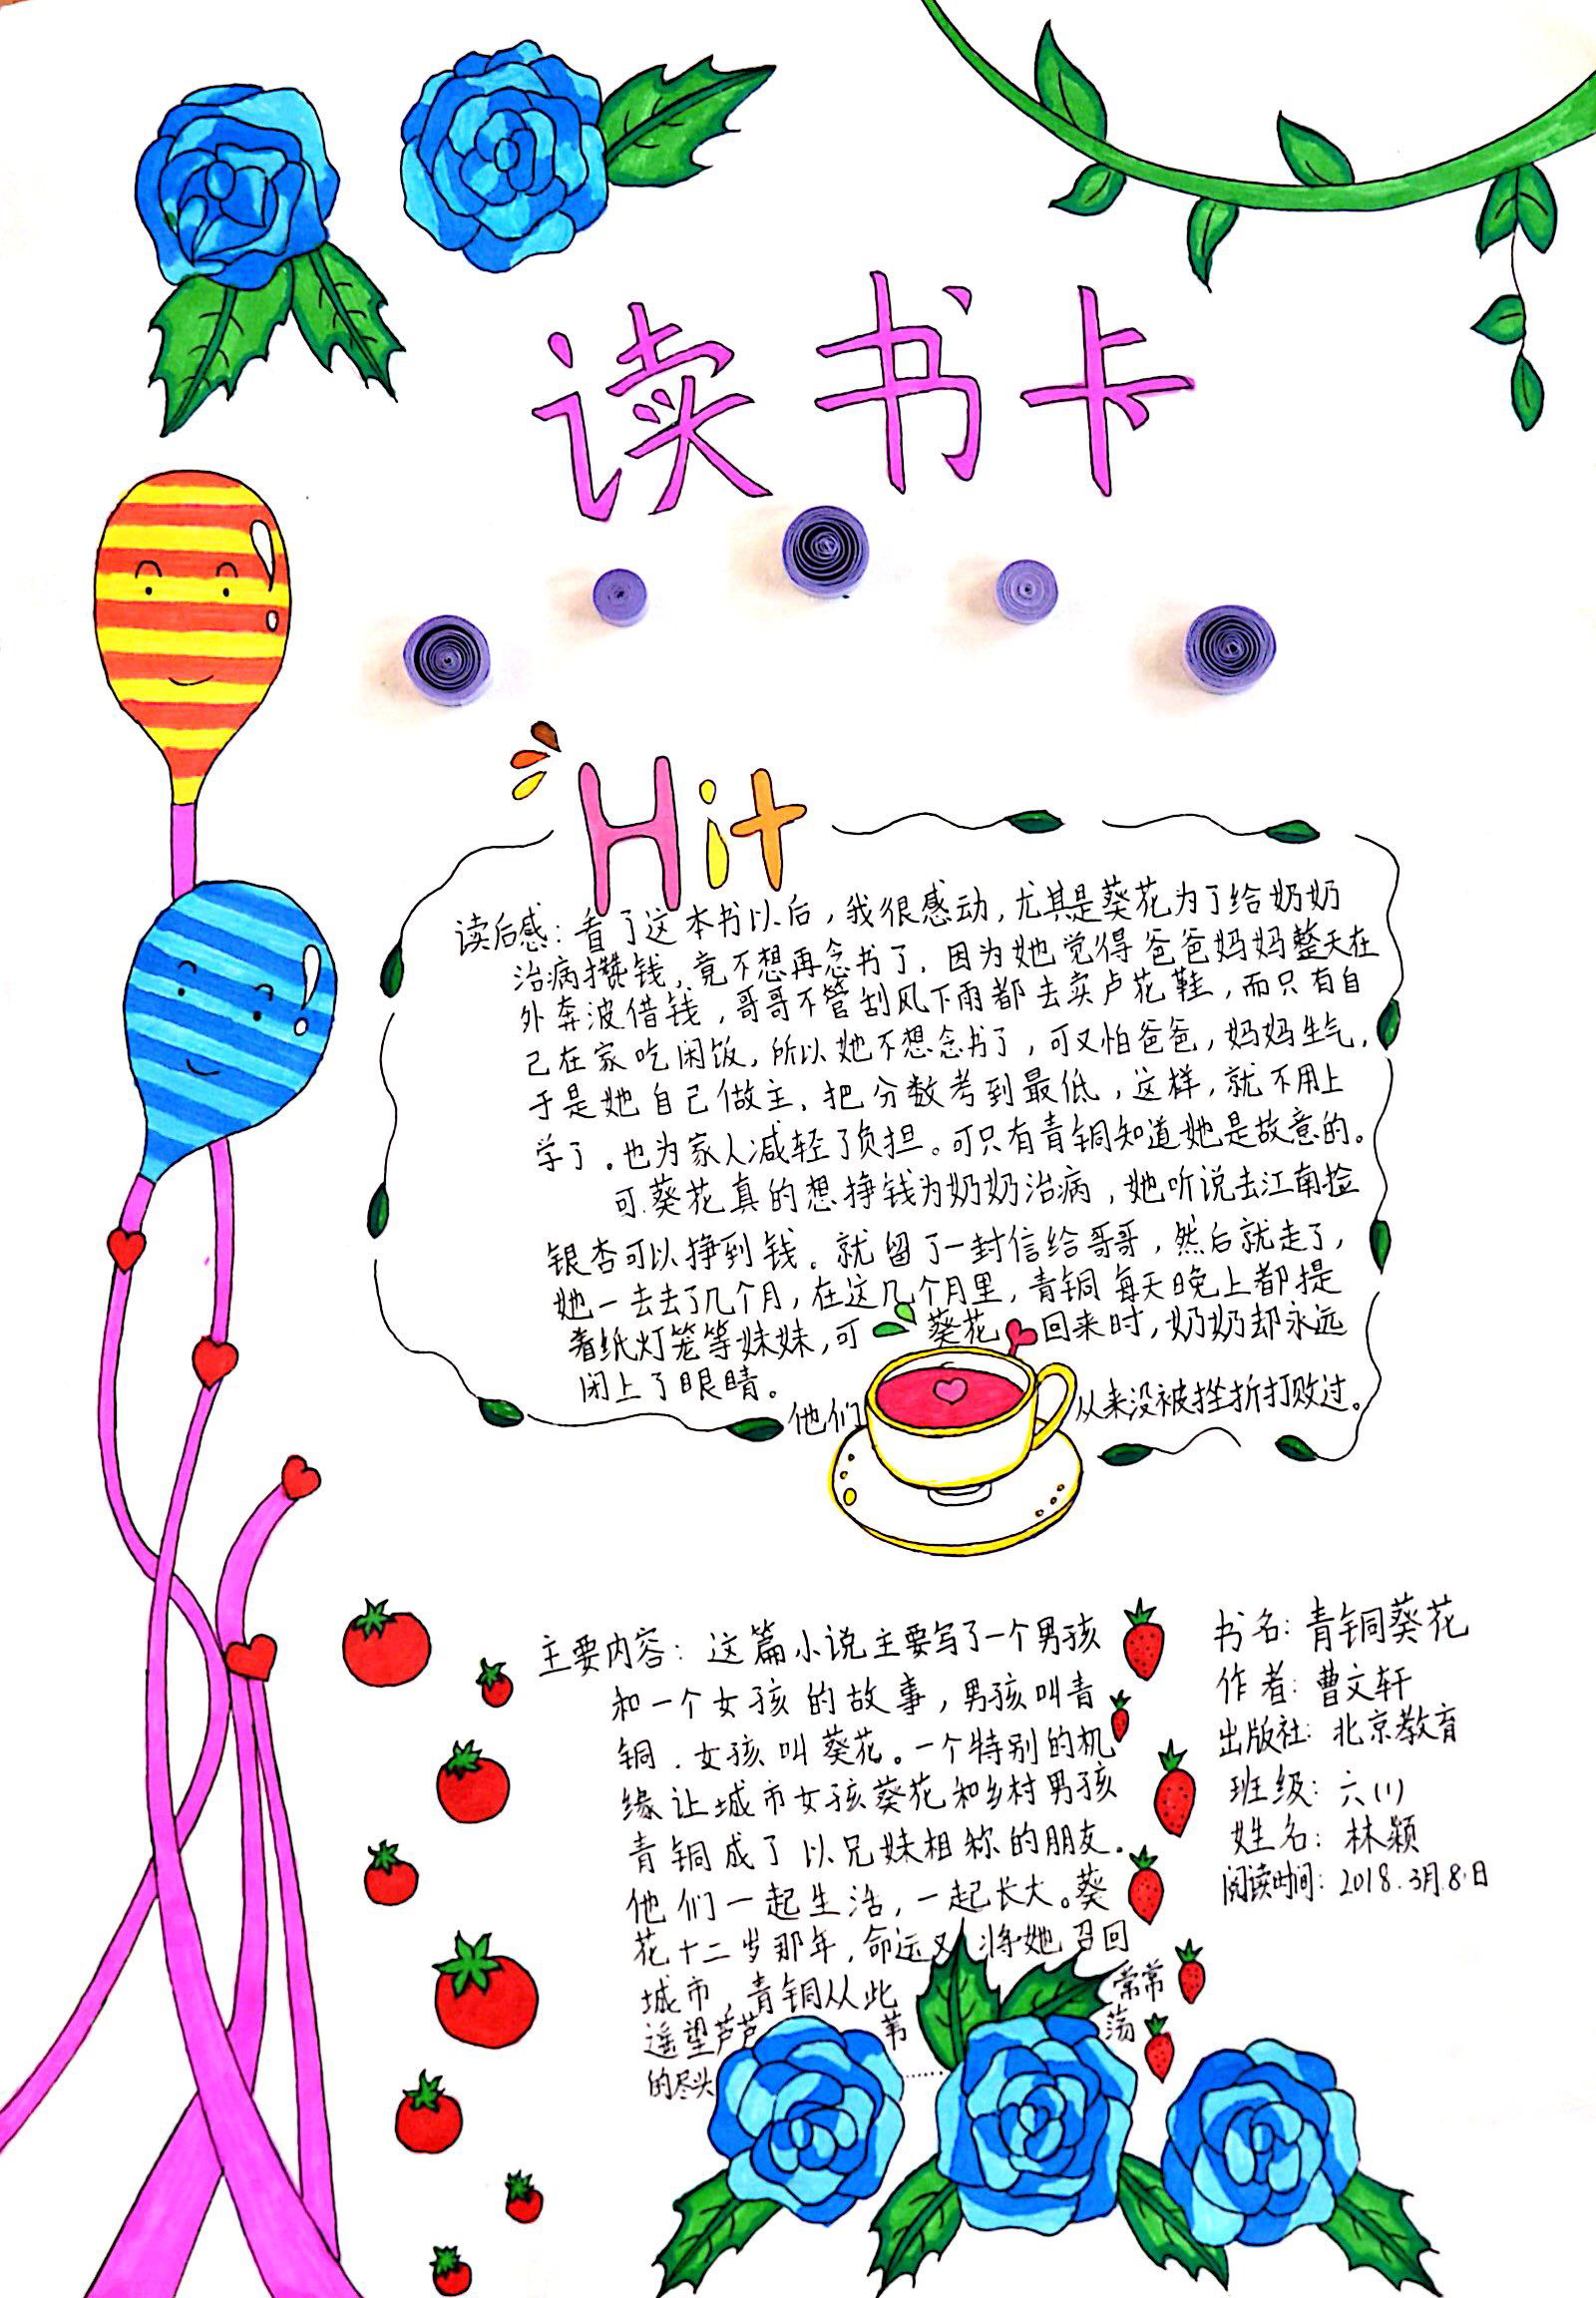 读书卡
Hit
读后感：看了这本书以后，我很感动，尤其是葵花为了给奶奶
治病攒钱，竟不想再念书了，因为她觉得爸爸妈妈整天在
外奔波借钱，哥哥不管刮风下雨都去卖芦花鞋，而只有自
己在家吃闲饭，所以她不想念书了，可又怕爸爸，妈妈生气，
于是她自己做主，把分数考到最低，这样，就不用上
学了。也为家人减轻了负担。可只有青铜知道她是故意的。
可葵花真的想挣钱为奶奶治病，她听说去江南捡
银杏可以挣到钱。就留了一封信给哥哥，然后就走了，
她一去去了几个月，在这几个月里，青铜每天晚上都提
着纸灯笼等妹妹，可葵花回来时，奶奶却永远
闭上了眼睛。
他们从来没被挫折打败过。
主要内容：这篇小说主要写了一个男孩
和一个女孩的故事，男孩叫青
铜．女孩叫葵花。一个特别的机
缘让城市女孩葵花和乡村男孩
青铜成了以兄妹相称的朋友。
他们一起生活，一起长大。葵
花十二岁那年，命运又将她召回
城市，青铜从此常常
遥望芦苇荡
的尽头……
书名：青铜葵花
作者：曹文轩
出版社：北京教育
班级：六(1)
姓名：林颖
阅读时间：2018.3月8日